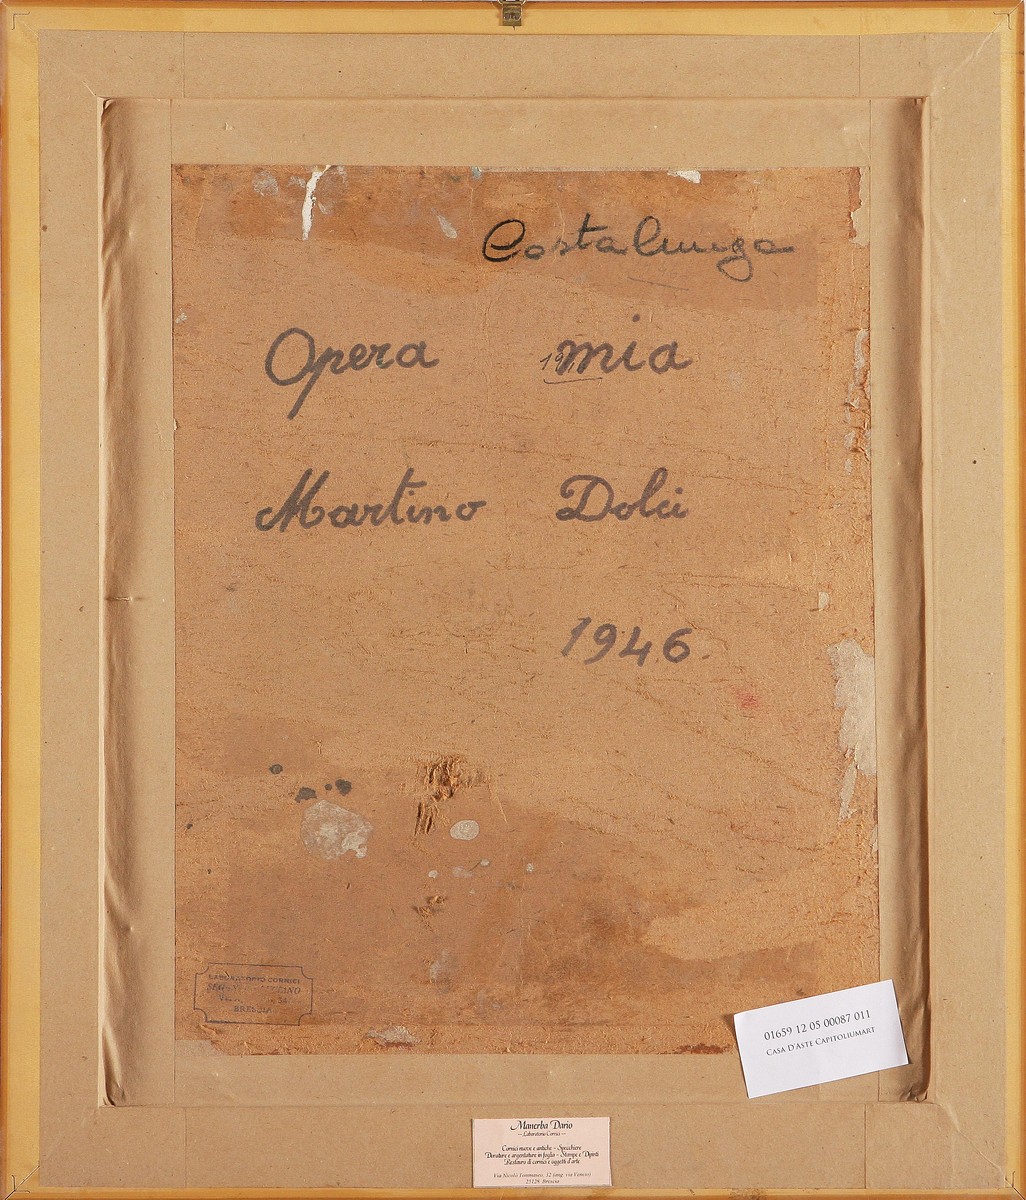 Costalunga
Opera mia
19
Martino Dolci
1946.
LABORATORIO CORNICI
BRESCIA
01659 12 05 00087 011
CASA D'ASTE CAPITOLIUMART
Manerba Dario
— Laboratorio Cornici —
Cornici nuove e antiche - Specchiere
Dorature e argentature in foglia - Stampe e Dipinti
Restauro di cornici e oggetti d'arte
Via Nicolò Tommaseo, 32 (ang. via Veneto)
25128 Brescia